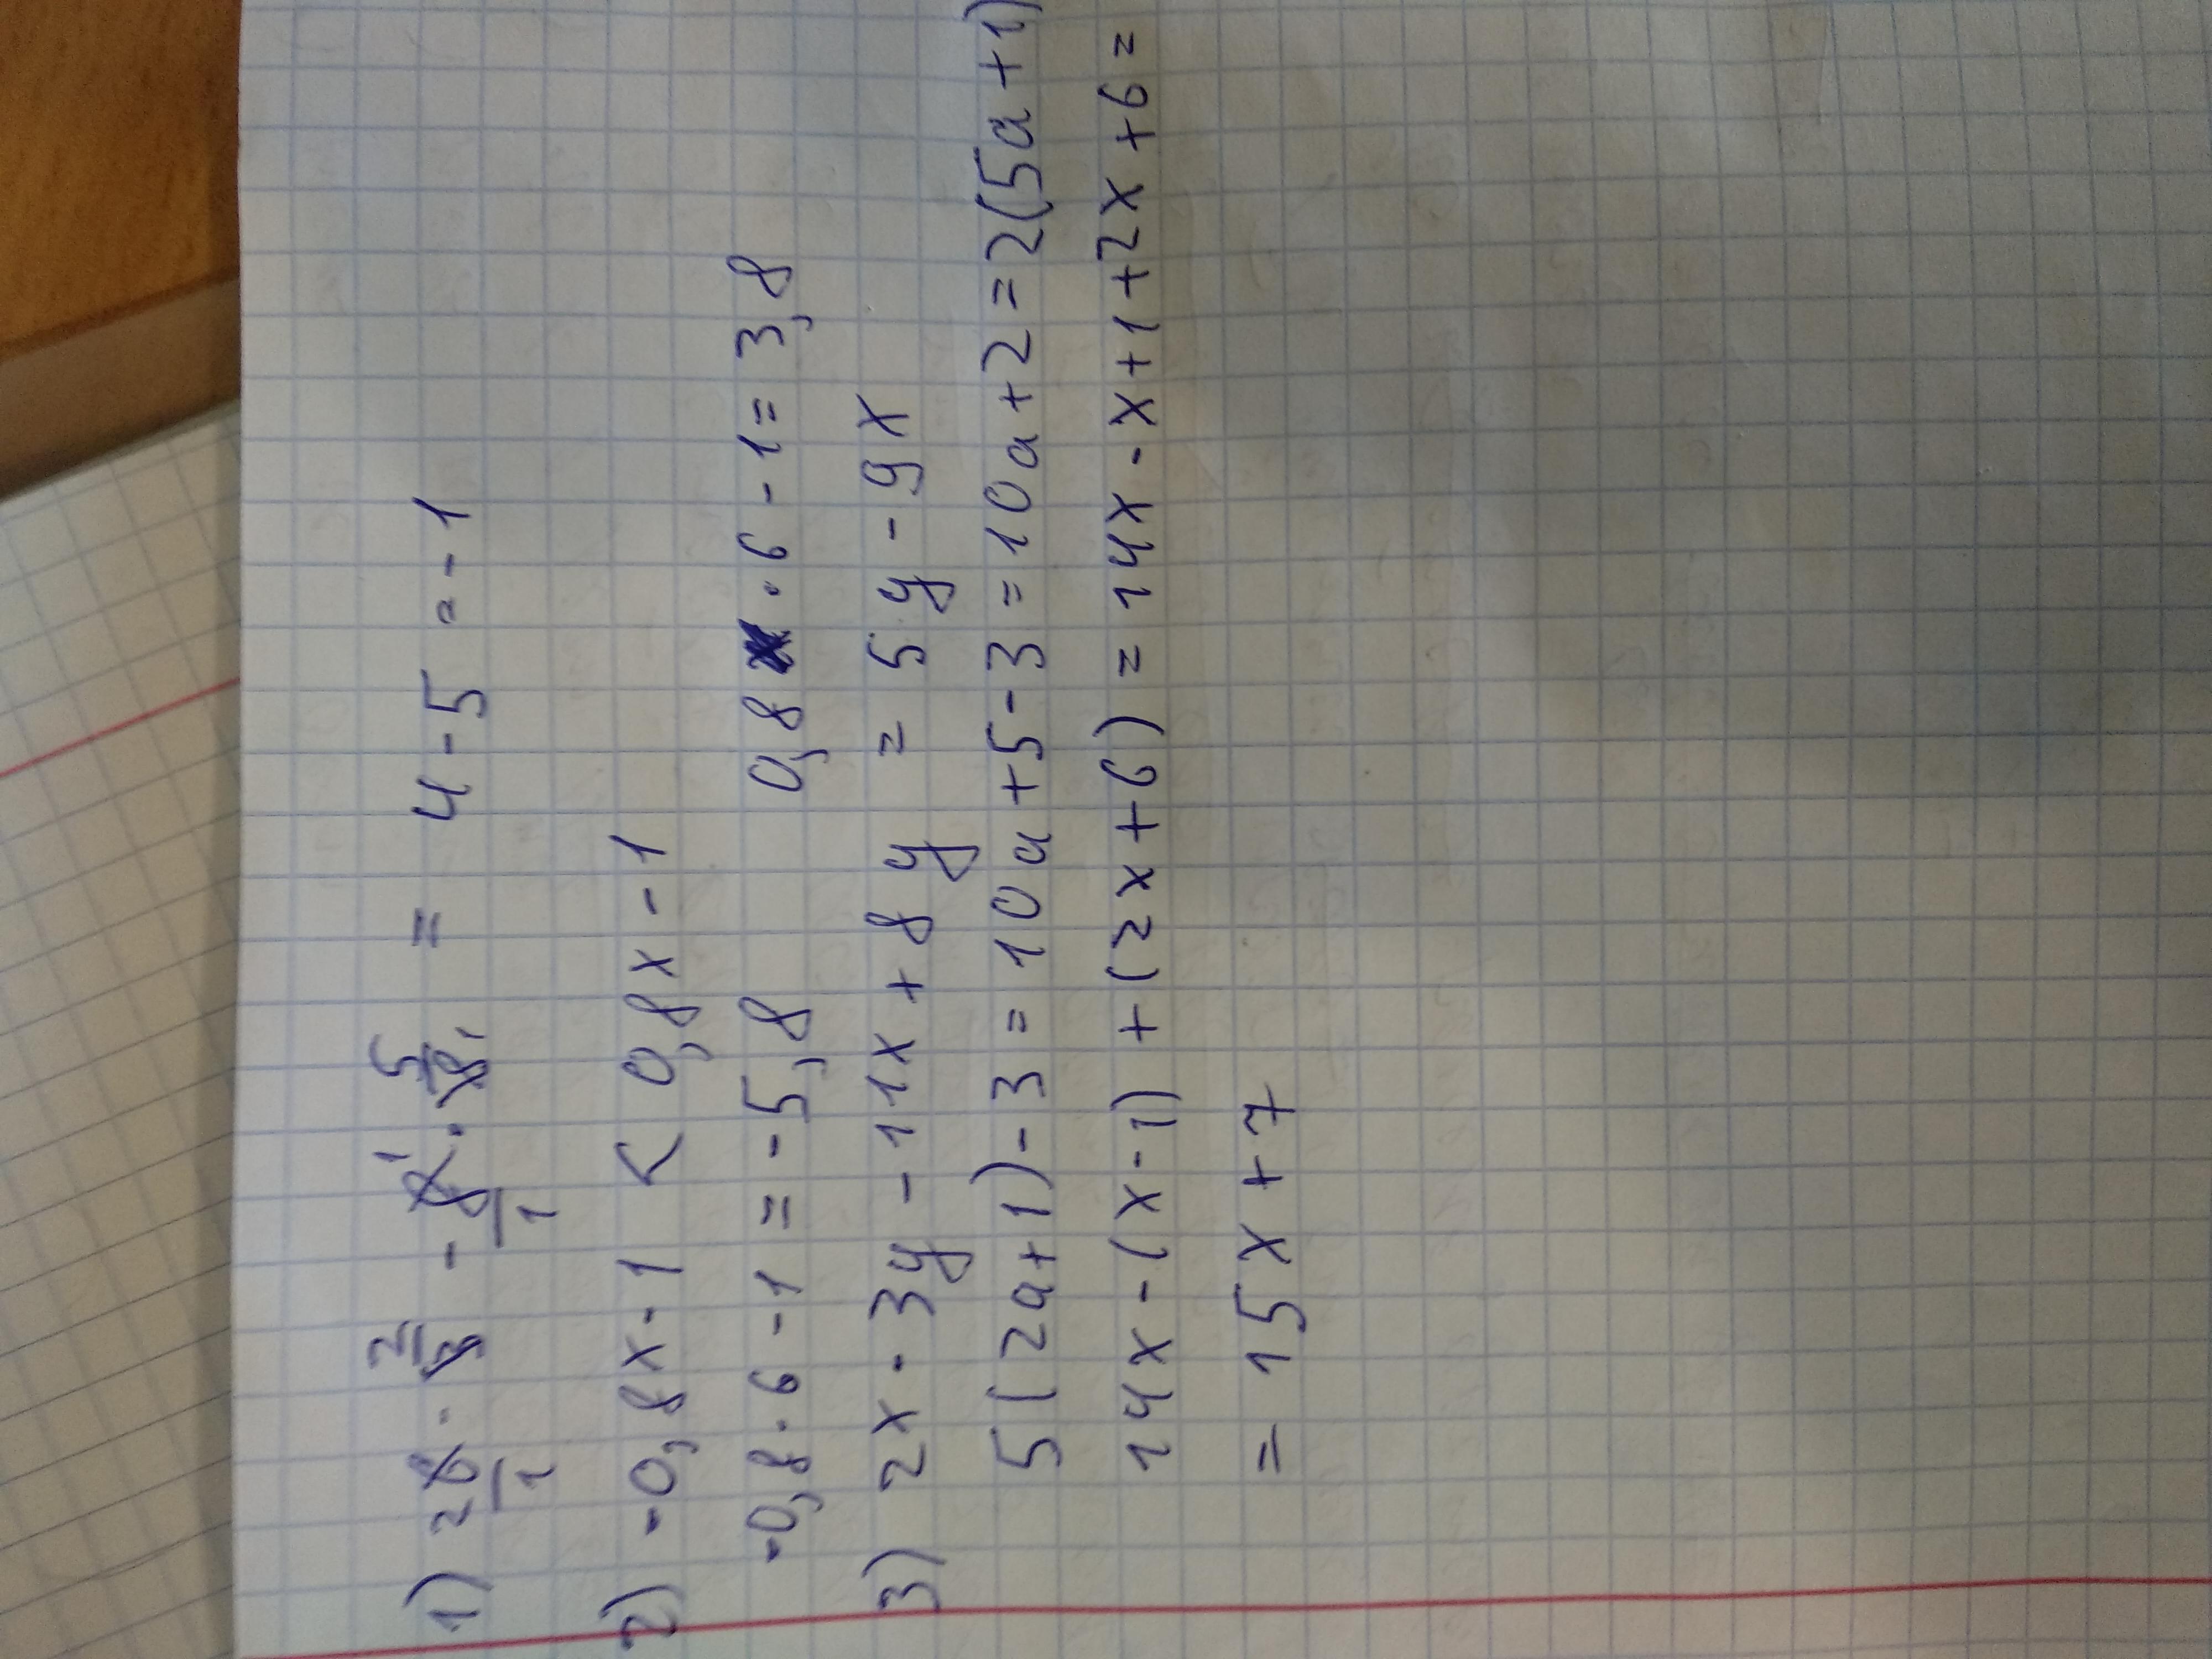 1) 2 6/1 · 2/3 - 8/1 · 5/8 = 4 - 5 = -1
2) -0,8x - 1 < 0,8x - 1
-0,8 · 6 - 1 = -5,8 0,8 · 6 - 1 = 3,8
3) 2x - 3y - 11x + 8y = 5y - 9x
5(2a+1) - 3 = 10a + 5 - 3 = 10a + 2 = 2(5a + 1)
14x - (x - 1) + (2x + 6) = 14x - x + 1 + 2x + 6 =
= 15x + 7